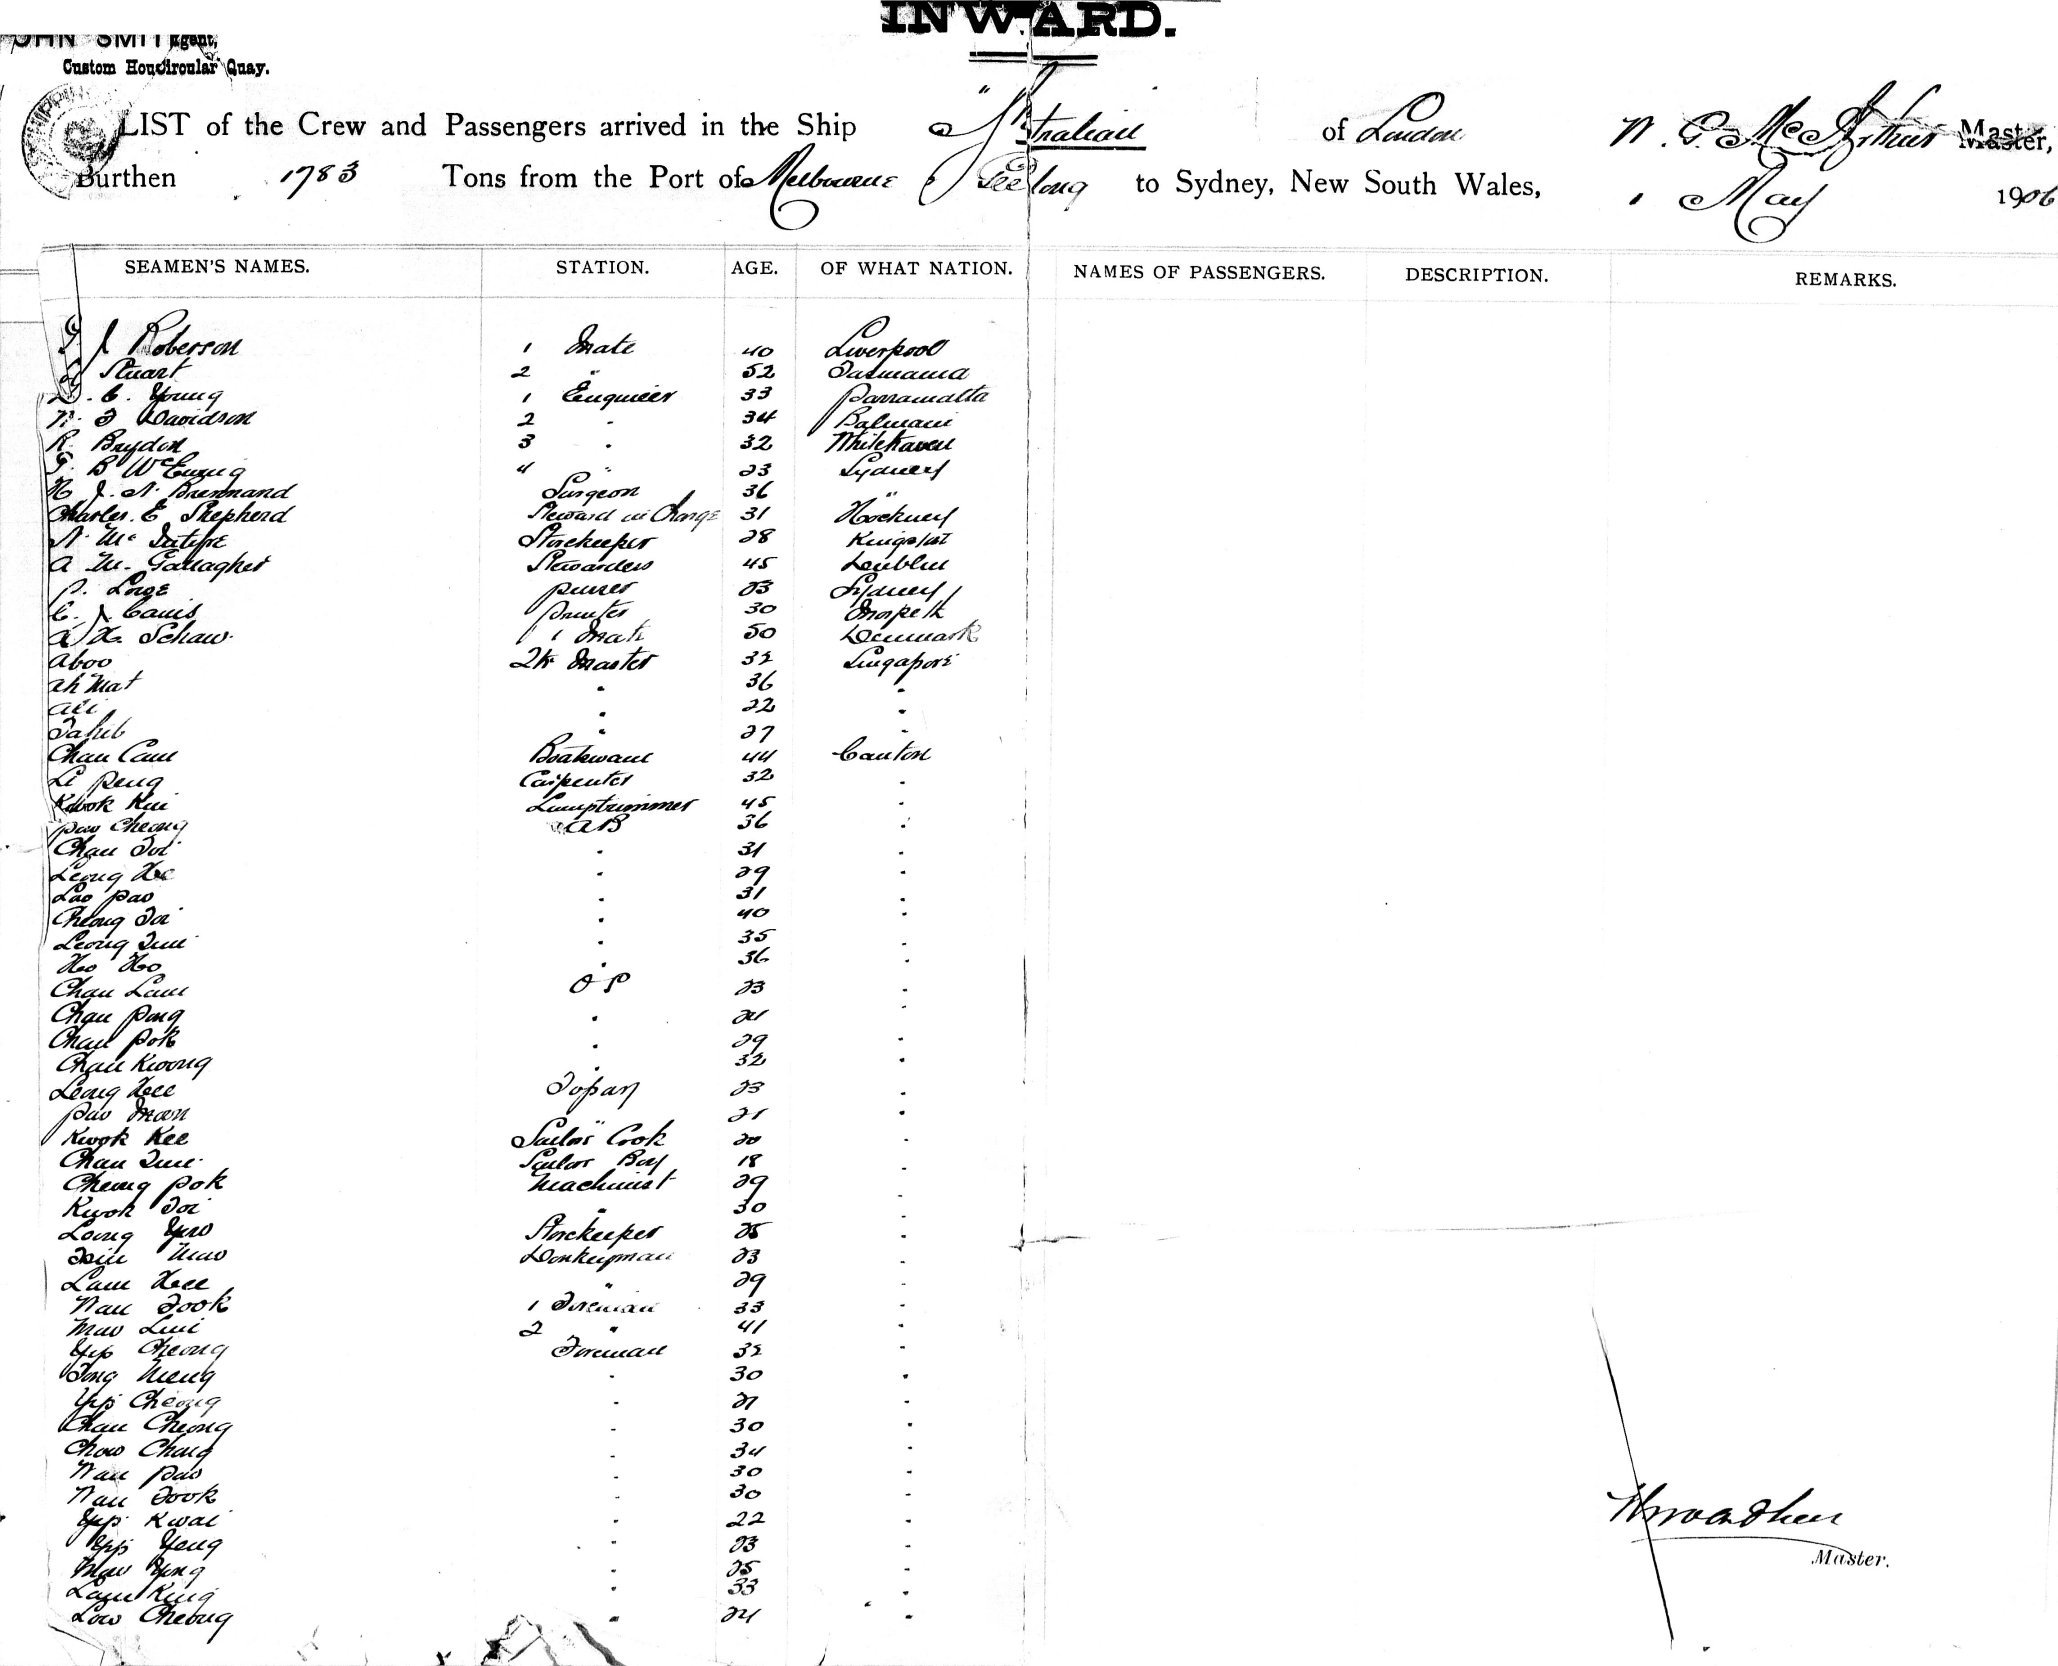 INWARD.
JOHN SMITH Agent,
Custom House Circular Quay.
LIST of the Crew and Passengers arrived in the Ship "Australian of London W. G. McArthur Master,
Burthen 1783 Tons from the Port of Melbourne Geelong to Sydney, New South Wales, 1 May 1906
SEAMEN'S NAMES. STATION. AGE. OF WHAT NATION. NAMES OF PASSENGERS. DESCRIPTION. REMARKS.
J Roberson 1 Mate 40 Liverpool
Stuart 2 " 52 Tasmania
C. Young 1 Engineer 33 Parramatta
W. F Davidson 2 " 34 Balmain
R. Brydon 3 " 32 Whitehaven
G. B McEwing 4 " 23 Sydney
H J. N. Brennand Surgeon 36 "
Charles. E Shepherd Steward in Charge 31 Hackney
N. McIntyre Storekeeper 28
A M. Gallagher Stewardess 45 Dublin
P. Lowe purser 23 Sydney
C. J. Canis printer 30 Morpeth
A H. Schaw. 1 Mate 50 Denmark
Aboo 2tr Master 32 Singapore
Ah Mat " 36 "
Ali " 22 "
Tahib " 27 "
Chan Cam Boatswain 44 Canton
Li Peng Carpenter 32 "
Kwok Kui Lamptrimmer 45 "
Pao Cheong AB 36 "
Chan Toi " 31 "
Leong Hee " 29 "
Lao Pao " 31 "
Cheong Toi " 40 "
Leong Tim " 35 "
Ho Ho " 36 "
Chan Lam OS 23 "
Chan Pong " 24 "
Chan Pok " 29 "
Chan Kwong " 32 "
Leong Hee Topay 23 "
Pao Man " 21 "
Kwok Kee Sailors Cook 20 "
Chan Tim Sailors Boy 18 "
Cheong Pok Machinist 29 "
Kwok Toi " 30 "
Leong Yow Storekeeper 25 "
Mow Donkeyman 23 "
Lam Hee " 29 "
Wan Fook 1 Fireman 33 "
Mow Lui 2 " 41 "
Yip Cheong Fireman 32 "
Tong Meng " 30 "
Yip Cheong " 27 "
Chan Cheong " 30 "
Chow Chong " 34 "
Wan Pao " 30 "
Wan Fook " 30 "
Yip Kwai " 22 "
Yip Yeng " 23 "
Mow Yong " 25 "
Lam King " 33 "
Low Cheong " 24 "
Master.